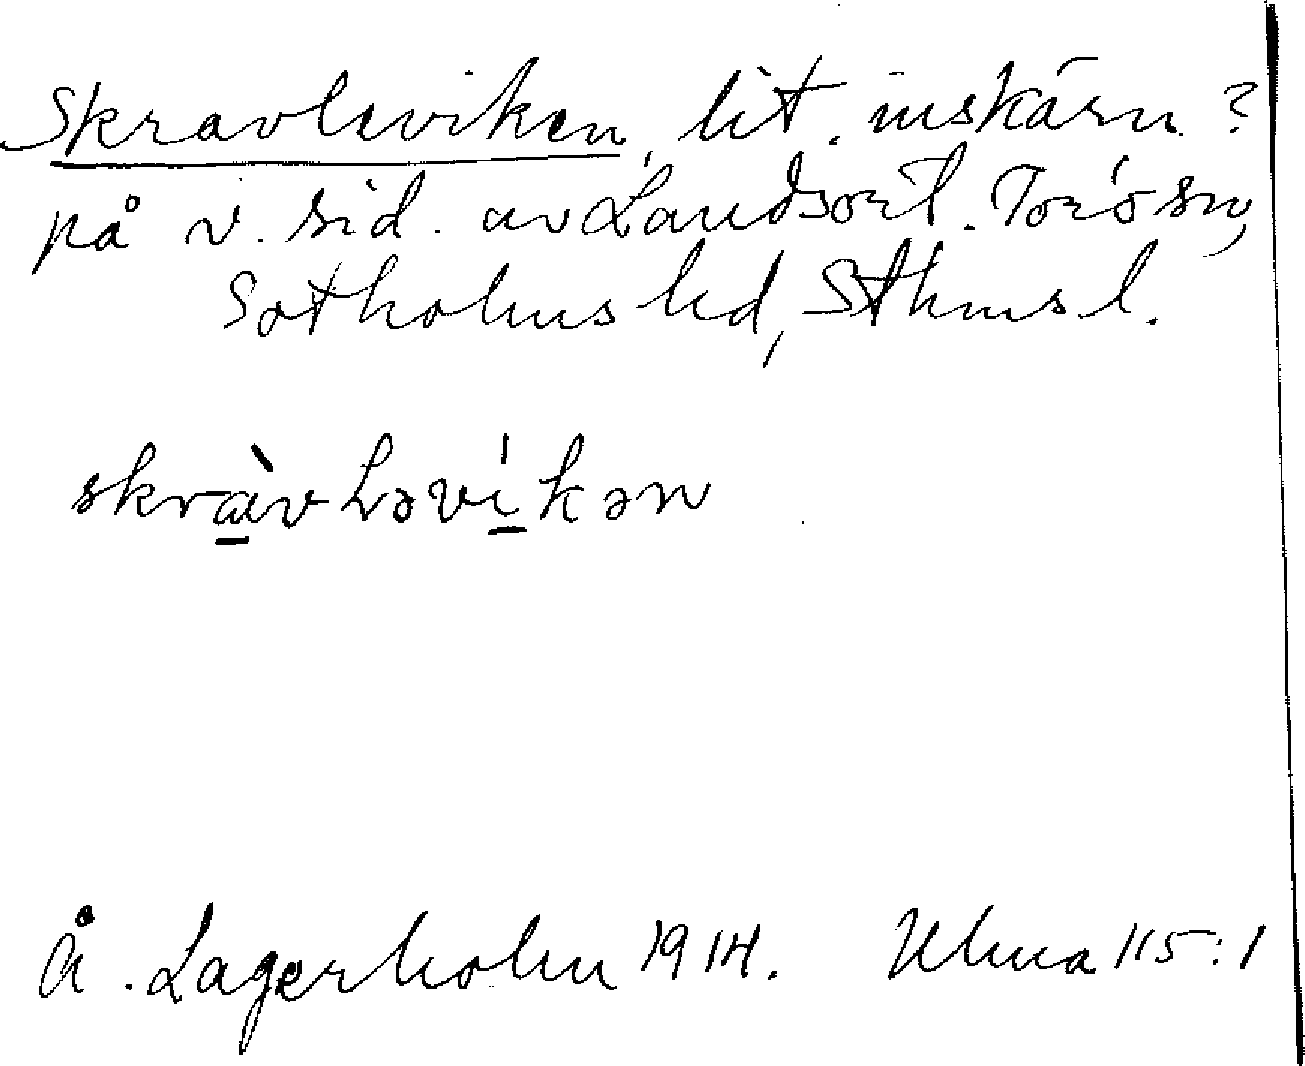 Skravleviken, lit. inskärn.?
på v. sid. av Landsort. Torö sn,
Sotholms hd, Sthms l.
skràvLəvíkən
Å. Lagerholm 1914. Ulma 115:1